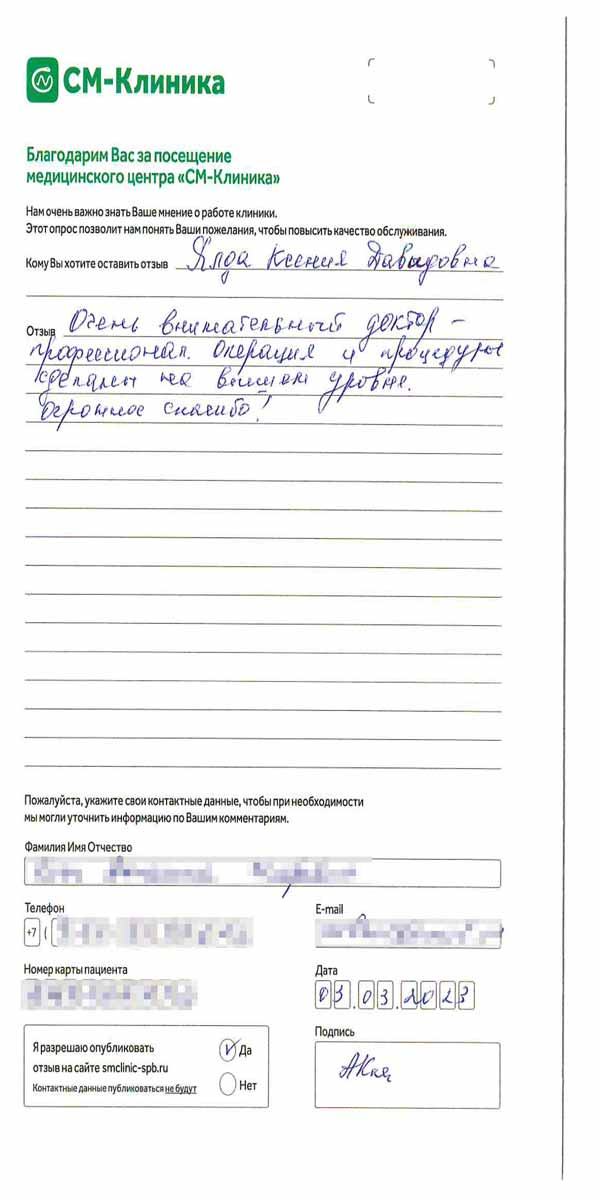 СМ-Клиника
Благодарим Вас за посещение
медицинского центра «СМ-Клиника»
Нам очень важно знать Ваше мнение о работе клиники.
Этот опрос позволит нам понять Ваши пожелания, чтобы повысить качество обслуживания.
Кому Вы хотите оставить отзыв Ялда Ксения Давидовна
Отзыв Очень внимательный доктор -
профессионал. Операция и процедуры
сделаны на вышем уровне.
Огромное спасибо!
Пожалуйста, укажите свои контактные данные, чтобы при необходимости
мы могли уточнить информацию по Вашим комментариям.
Фамилия Имя Отчество
Телефон
E-mail
+7 (
Номер карты пациента
Дата
03.03.2023
Я разрешаю опубликовать
отзыв на сайте smclinic-spb.ru
Контактные данные публиковаться не будут
Да
Нет
Подпись